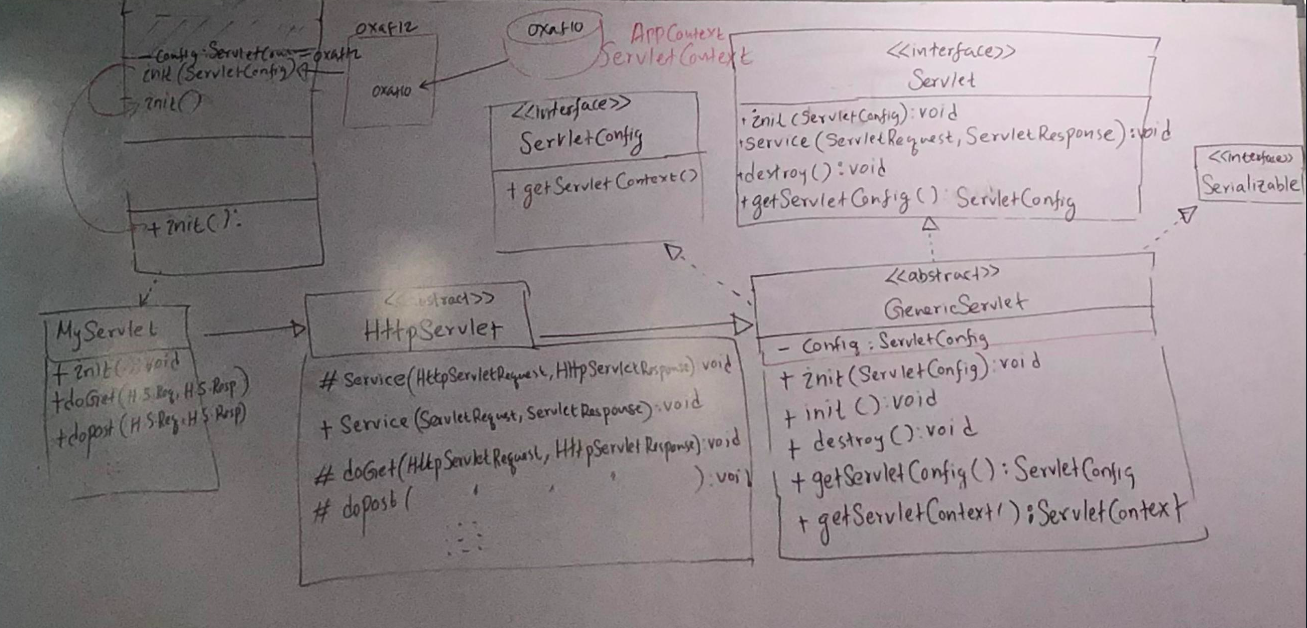 0xaf12
0xaf10
AppContext
ServletContext
init(ServletConfig)
init()
0xaf10
+ init():
<<interface>>
ServletConfig
+ getServletContext()
<<interface>>
Servlet
+init(ServletConfig): void
+service(ServletRequest, ServletResponse): void
+destroy(): void
+getServletConfig(): ServletConfig
<<interface>>
Serializable
MyServlet
+ init(): void
+doGet(H.S.Req, H.S.Resp)
+dopost(H.S.Req, H.S.Resp)
HttpServlet
# Service(HttpServletRequest, HttpServletResponse) void
+ Service(ServletRequst, ServletResponse): void
# doGet(HttpServletRequest, HttpServletResponse): void
# dopost( ' ' ' ): voi
<<abstract>>
GenericServlet
- Config: ServletConfig
+ init(ServletConfig): void
+ init(): void
+ destroy(): void
+ getServletConfig(): ServletConfig
+ getServletContext(): ServletContext